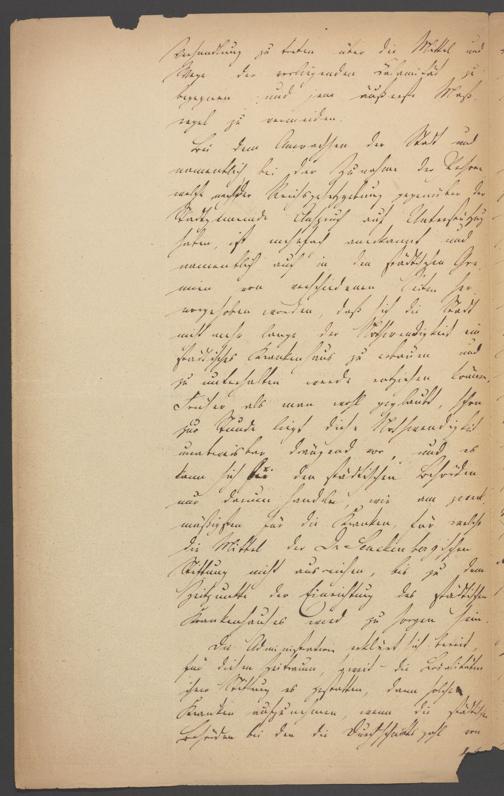 Verhandlung zu treten über die Mittel und
Wege der vorliegenden Calamität zu
begegnen und jene äußerste Maß-
regel zu vermeiden.
Bei dem Anwachsen der Stadt und
namentlich bei der Zunahme der Personen
welche nach der Reichsgesetzgebung gegenüber der
Stadtgemeinde Anspruch auf Unterstützung
haben, ist mehrfach anerkannt und
namentlich auch in den städtischen Gre-
mien von verschiedenen Seiten her-
vorgehoben worden, daß sich die Stadt
nicht mehr lange der Nothwendigkeit ein
städtisches Krankenhaus zu erbauen und
zu unterhalten werde entziehen können.
Früher als man wohl geglaubt, schon
zur Stunde liegt diese Nothwendigkeit
unabweisbar drängend vor, und es
kann sich bei den städtischen Behörden
nur darum handeln, wie am zweck-
mäßigsten für die Kranken, für welche
die Mittel der Dr. Senckenbergischen
Stiftung nicht ausreichen, bis zu dem
Zeitpunkte der Einrichtung des städtischen
Krankenhauses wird zu sorgen sein.
Die Administration erklärt sich bereit
für diesen Zeitraum, soweit die Localitäten
ihrer Stiftung es gestatten, dann solche
Kranken aufzunehmen, wenn die städtischen
Behörden bei den die Durchschnittszahl von